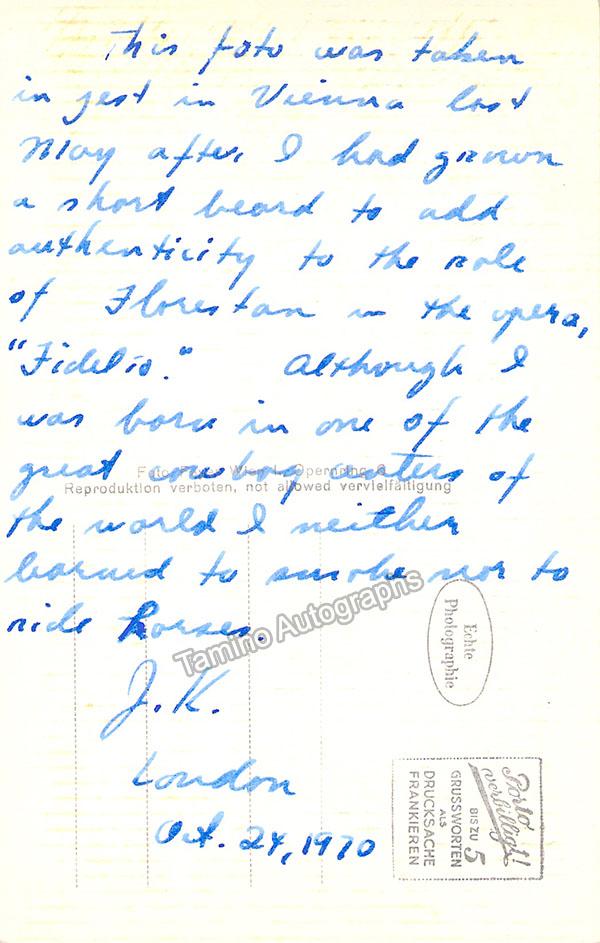 This foto was taken
in jest in Vienna last
May after I had grown
a short beard to add
authenticity to the role
of Florestan in the opera,
"Fidelio." Although I
was born in one of the
great cowboy centers of
Wien I. Opernring
Reproduktion verboten, not allowed vervielfältigung
the world I neither
learned to smoke nor to
ride horses.
Tamino Autographs
J.K.
London
Oct. 24, 1970
Echte
Photographie
Porto
verbilligt!
BIS ZU 5
GRUSSWORTEN
ALS
DRUCKSACHE
FRANKIEREN